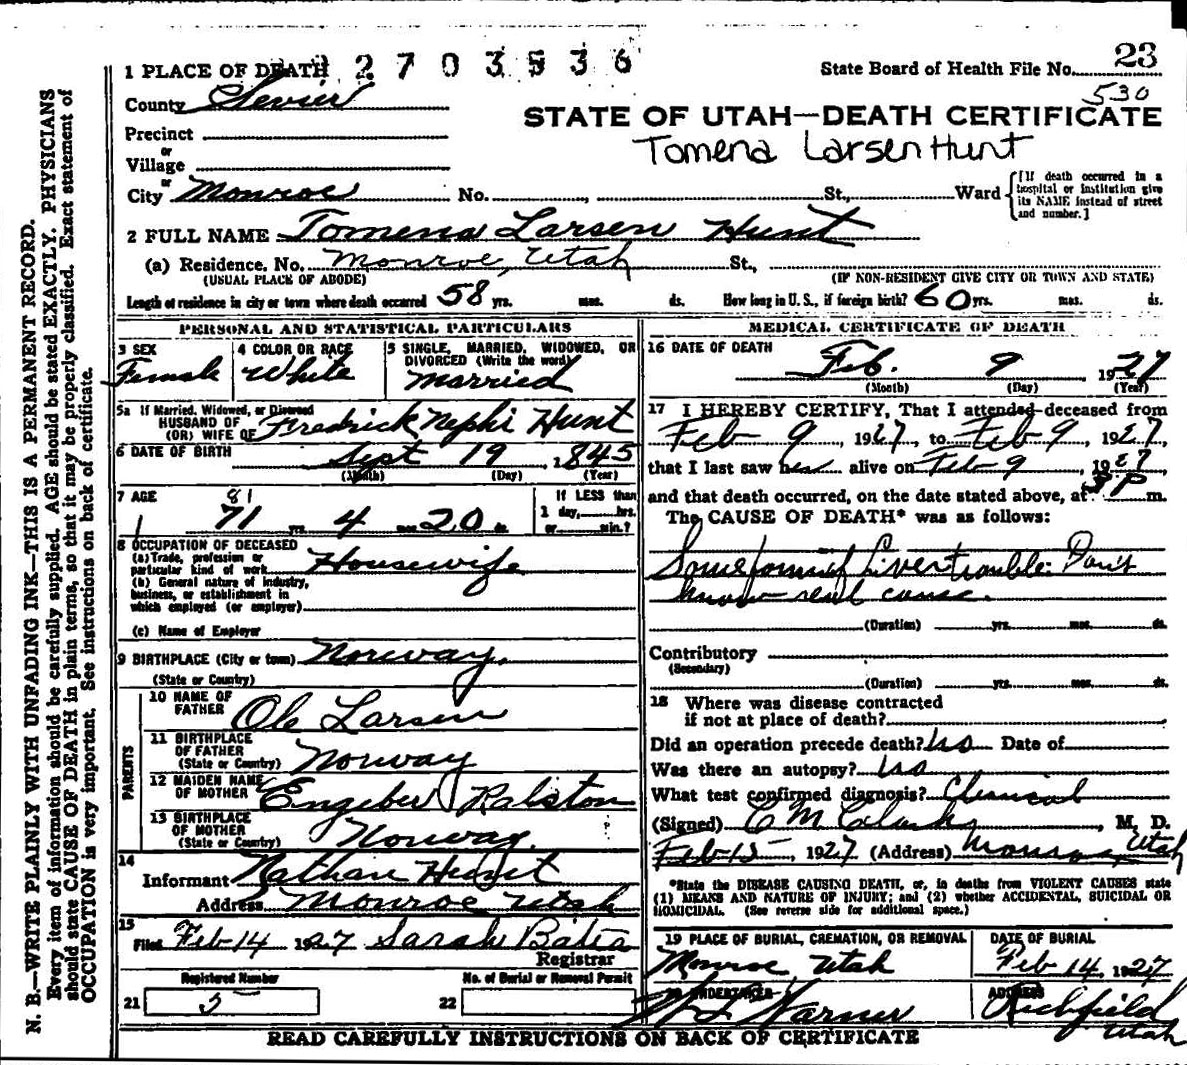 1 PLACE OF DEATH 2 7 0 3 5 3 6
State Board of Health File No. 23
530
County Sevier
STATE OF UTAH—DEATH CERTIFICATE
Tomena Larsen Hunt
Precinct
or
Village
or
City Monroe No. St., Ward
[If death occurred in a hospital or institution give its NAME instead of street and number.]
2 FULL NAME Tomena Larsen Hunt
(a) Residence. No. Monroe, Utah St.,
(USUAL PLACE OF ABODE) (IF NON-RESIDENT GIVE CITY OR TOWN AND STATE)
Length of residence in city or town where death occurred 58 yrs. mos. ds. How long in U. S., if foreign birth? 60 yrs. mos. ds.
PERSONAL AND STATISTICAL PARTICULARS
3 SEX
Female
4 COLOR OR RACE
White
5 SINGLE, MARRIED, WIDOWED, OR DIVORCED (Write the word)
Married
5a If Married, Widowed, or Divorced
HUSBAND OF
(OR) WIFE OF Fredrick Nephi Hunt
6 DATE OF BIRTH Sept 19, 1845
(Month) (Day) (Year)
7 AGE 81
71 yrs. 4 mos. 20 ds.
If LESS than
1 day, hrs.
or min.?
8 OCCUPATION OF DECEASED
(a) Trade, profession or
particular kind of work Housewife
(b) General nature of industry,
business, or establishment in
which employed (or employer)
(c) Name of Employer
9 BIRTHPLACE (City or town) Norway.
(State or Country)
PARENTS
10 NAME OF
FATHER Ole Larsen
11 BIRTHPLACE
OF FATHER
(State or Country) Norway
12 MAIDEN NAME
OF MOTHER Engeber Ralston
13 BIRTHPLACE
OF MOTHER
(State or Country) Norway.
14
Informant Nathan Hunt
Address Monroe Utah
15
Filed Feb 14 1927 Sarah
Registrar
Registered Number No. of Burial or Removal Permit
21 5 22
MEDICAL CERTIFICATE OF DEATH
16 DATE OF DEATH
Feb. 9 1927
(Month) (Day) (Year)
17 I HEREBY CERTIFY, That I attended deceased from
Feb 9, 1927, to Feb 9, 1927,
that I last saw her alive on Feb 9, 1927,
and that death occurred, on the date stated above, at 3 P m.
The CAUSE OF DEATH* was as follows:
Some form of Liver trouble. Don't
know real cause.
(Duration) yrs. mos. ds.
Contributory
(Secondary)
(Duration) yrs. mos. ds.
18 Where was disease contracted
if not at place of death?
Did an operation precede death? No Date of
Was there an autopsy? No
What test confirmed diagnosis? Clinical
(Signed) C M Clark, M. D.
Feb 15, 1927 (Address) Monroe, Utah
*State the DISEASE CAUSING DEATH, or, in deaths from VIOLENT CAUSES state
(1) MEANS AND NATURE OF INJURY; and (2) whether ACCIDENTAL, SUICIDAL OR
HOMICIDAL. (See reverse side for additional space.)
19 PLACE OF BURIAL, CREMATION, OR REMOVAL
Monroe, Utah
DATE OF BURIAL
Feb 14, 1927
20 UNDERTAKER
Warner
ADDRESS
Richfield
Utah
READ CAREFULLY INSTRUCTIONS ON BACK OF CERTIFICATE
N. B.—WRITE PLAINLY WITH UNFADING INK—THIS IS A PERMANENT RECORD.
Every item of information should be carefully supplied. AGE should be stated EXACTLY. PHYSICIANS
should state CAUSE OF DEATH in plain terms, so that it may be properly classified. Exact statement of
OCCUPATION is very important. See instructions on back of certificate.